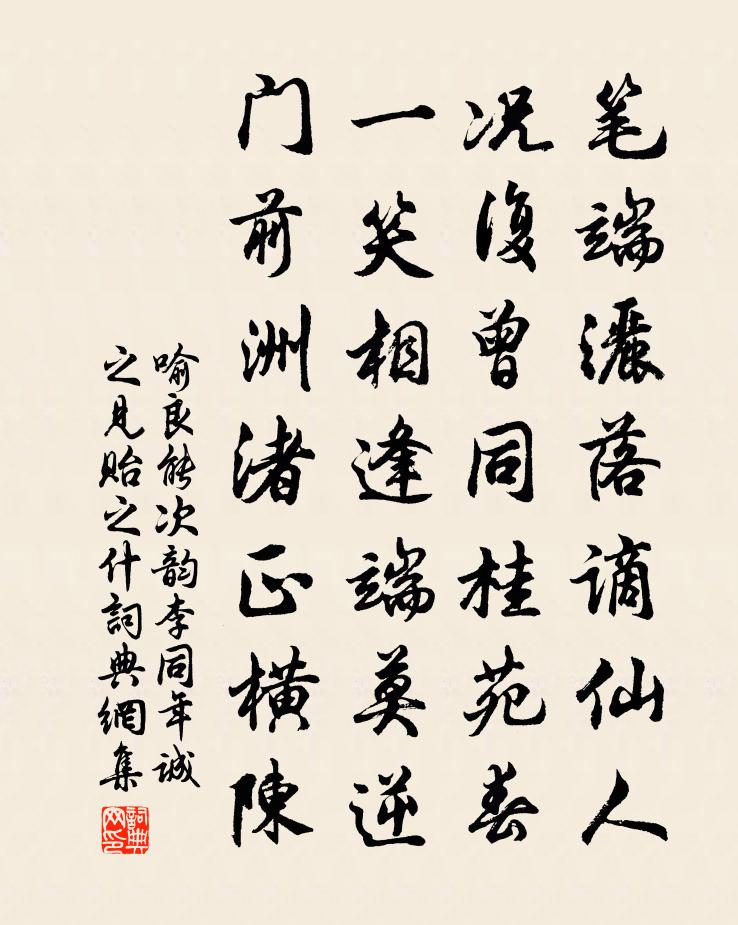 笔端灑落谪仙人
况復曾同桂苑春
一笑相逢端莫逆
门前洲渚正横陳
喻良能次韵李同年诚
之见贻之什詞典網集
詞典
网印